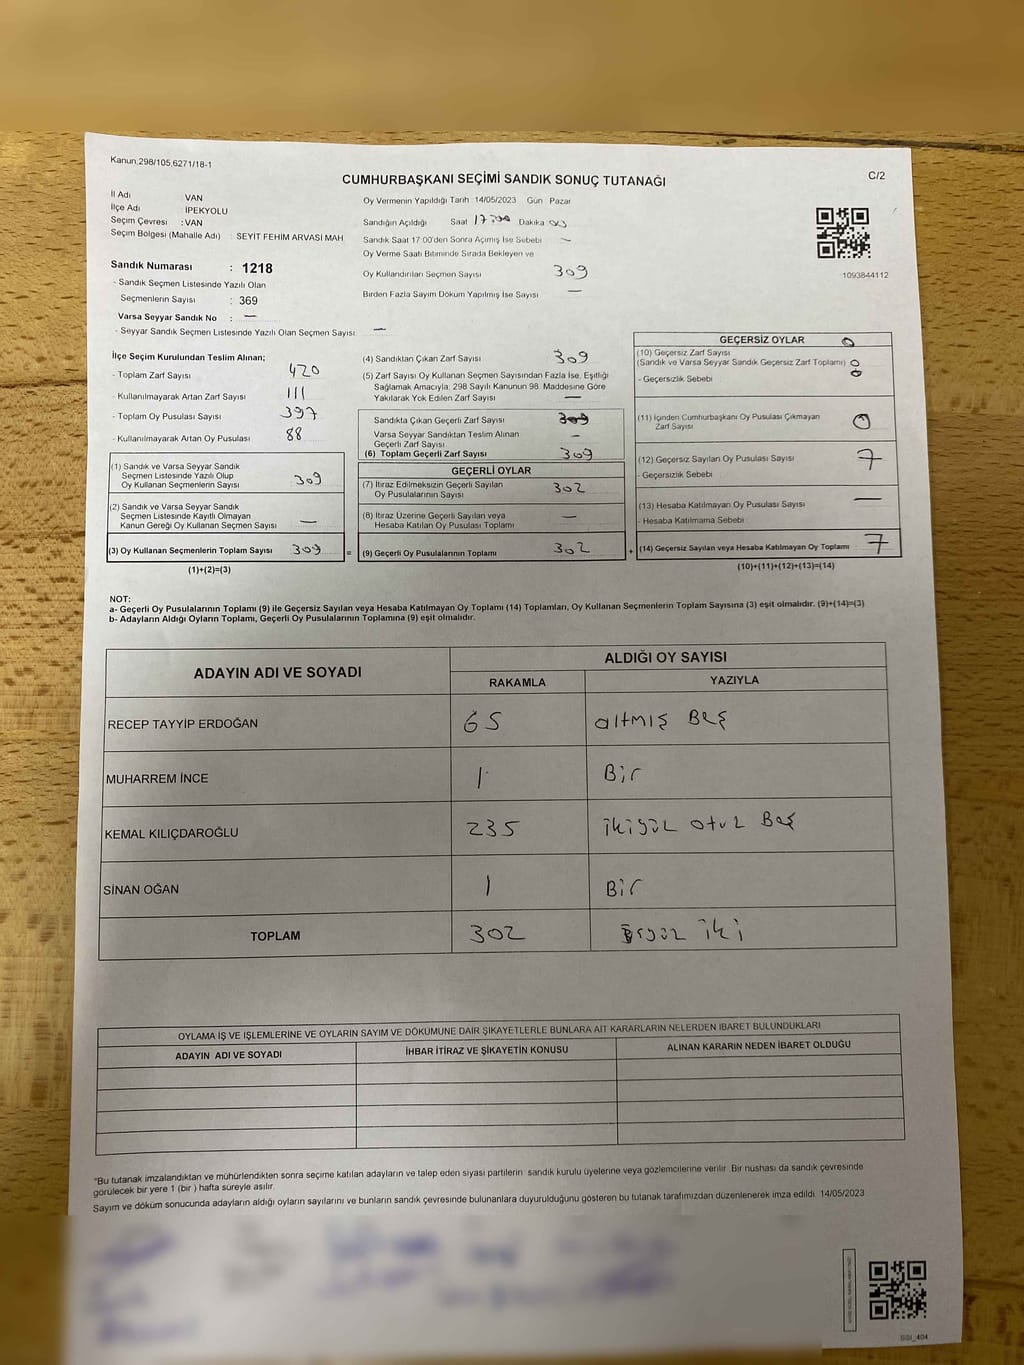 Kanun:298/105,6271/18-1
C/2
CUMHURBAŞKANI SEÇİMİ SANDIK SONUÇ TUTANAĞI
İl Adı VAN
İlçe Adı İPEKYOLU
Seçim Çevresi : VAN
Seçim Bölgesi (Mahalle Adı) : SEYİT FEHİM ARVASİ MAH
Sandık Numarası : 1218
- Sandık Seçmen Listesinde Yazılı Olan
Seçmenlerin Sayısı : 369
Varsa Seyyar Sandık No : —
- Seyyar Sandık Seçmen Listesinde Yazılı Olan Seçmen Sayısı —
Oy Vermenin Yapıldığı Tarih : 14/05/2023 Gün Pazar
Sandığın Açıldığı Saat 17 Dakika
Sandık Saat 17:00'den Sonra Açılmış İse Sebebi —
Oy Verme Saati Bitiminde Sırada Bekleyen ve
Oy Kullandırılan Seçmen Sayısı 309
Birden Fazla Sayım Döküm Yapılmış İse Sayısı —
1093844112
İlçe Seçim Kurulundan Teslim Alınan;
- Toplam Zarf Sayısı 420
- Kullanılmayarak Artan Zarf Sayısı 111
- Toplam Oy Pusulası Sayısı 397
- Kullanılmayarak Artan Oy Pusulası 88
(1) Sandık ve Varsa Seyyar Sandık
Seçmen Listesinde Yazılı Olup
Oy Kullanan Seçmenlerin Sayısı 309
(2) Sandık ve Varsa Seyyar Sandık
Seçmen Listesinde Kayıtlı Olmayan
Kanun Gereği Oy Kullanan Seçmen Sayısı —
(3) Oy Kullanan Seçmenlerin Toplam Sayısı 309 =
(1)+(2)=(3)
(4) Sandıktan Çıkan Zarf Sayısı 309
(5) Zarf Sayısı Oy Kullanan Seçmen Sayısından Fazla İse, Eşitliği
Sağlamak Amacıyla, 298 Sayılı Kanunun 98. Maddesine Göre
Yakılarak Yok Edilen Zarf Sayısı —
Sandıkta Çıkan Geçerli Zarf Sayısı 309
Varsa Seyyar Sandıktan Teslim Alınan
Geçerli Zarf Sayısı —
(6) Toplam Geçerli Zarf Sayısı 309
GEÇERLİ OYLAR
(7) İtiraz Edilmeksizin Geçerli Sayılan
Oy Pusulalarının Sayısı 302
(8) İtiraz Üzerine Geçerli Sayılan veya
Hesaba Katılan Oy Pusulası Toplamı —
(9) Geçerli Oy Pusulalarının Toplamı 302 +
GEÇERSİZ OYLAR 0
(10) Geçersiz Zarf Sayısı
(Sandık ve Varsa Seyyar Sandık Geçersiz Zarf Toplamı) 0
- Geçersizlik Sebebi 0
(11) İçinden Cumhurbaşkanı Oy Pusulası Çıkmayan
Zarf Sayısı 0
(12) Geçersiz Sayılan Oy Pusulası Sayısı 7
- Geçersizlik Sebebi
(13) Hesaba Katılmayan Oy Pusulası Sayısı —
- Hesaba Katılmama Sebebi
(14) Geçersiz Sayılan veya Hesaba Katılmayan Oy Toplamı 7
(10)+(11)+(12)+(13)=(14)
NOT:
a- Geçerli Oy Pusulalarının Toplamı (9) ile Geçersiz Sayılan veya Hesaba Katılmayan Oy Toplamı (14) Toplamları, Oy Kullanan Seçmenlerin Toplam Sayısına (3) eşit olmalıdır. (9)+(14)=(3)
b- Adayların Aldığı Oyların Toplamı, Geçerli Oy Pusulalarının Toplamına (9) eşit olmalıdır.
ADAYIN ADI VE SOYADI ALDIĞI OY SAYISI
RAKAMLA YAZIYLA
RECEP TAYYİP ERDOĞAN 65 altmış Beş
MUHARREM İNCE 1 Bir
KEMAL KILIÇDAROĞLU 235 ikiyüz otuz Beş
SİNAN OĞAN 1 Bir
TOPLAM 302 üçyüz iki
OYLAMA İŞ VE İŞLEMLERİNE VE OYLARIN SAYIM VE DÖKÜMÜNE DAİR ŞİKAYETLERLE BUNLARA AİT KARARLARIN NELERDEN İBARET BULUNDUKLARI
ADAYIN ADI VE SOYADI İHBAR İTİRAZ VE ŞİKAYETİN KONUSU ALINAN KARARIN NEDEN İBARET OLDUĞU
"Bu tutanak imzalandıktan ve mühürlendikten sonra seçime katılan adayların ve talep eden siyasi partilerin sandık kurulu üyelerine veya gözlemcilerine verilir. Bir nüshası da sandık çevresinde
görülecek bir yere 1 (bir ) hafta süreyle asılır.
Sayım ve döküm sonucunda adayların aldığı oyların sayılarını ve bunların sandık çevresinde bulunanlara duyurulduğunu gösteren bu tutanak tarafımızdan düzenlenerek imza edildi. 14/05/2023
SSI_404